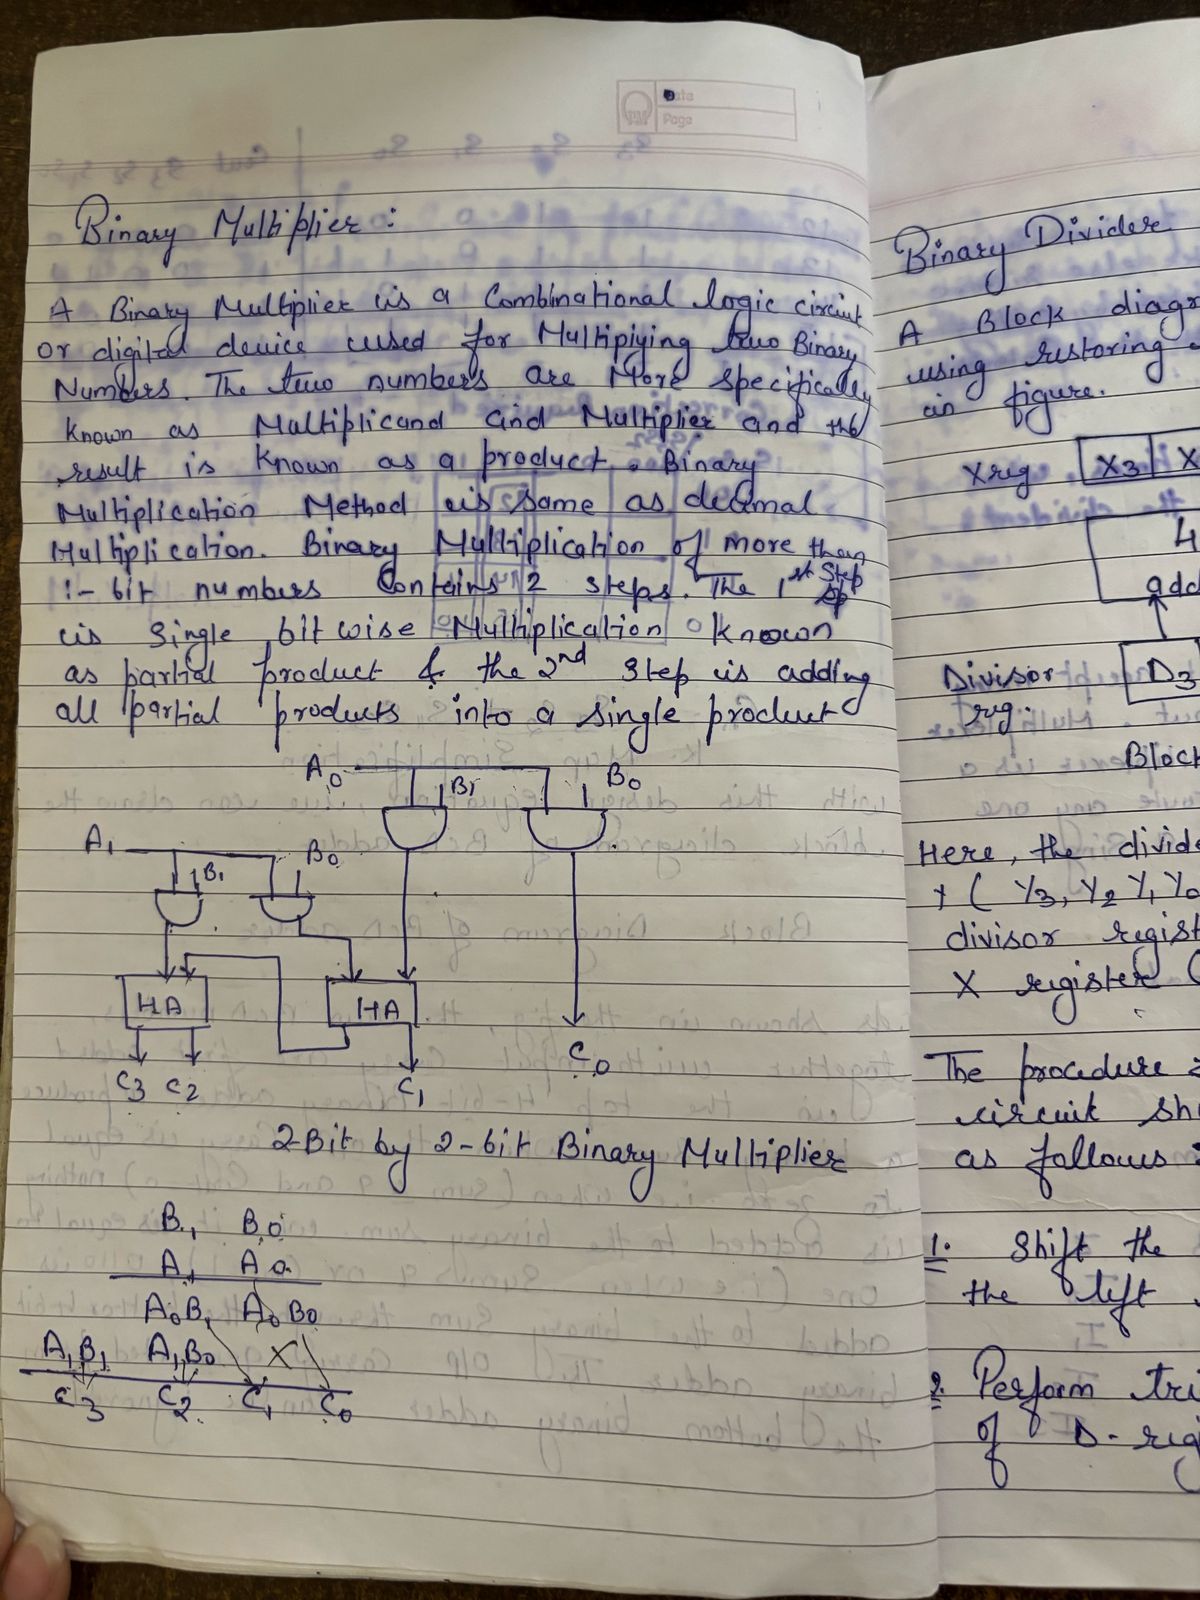 Date
Page
Binary Multiplier :
A Binary Multiplier is a Combinational logic circuit
or digital device used for Multiplying two Binary
Numbers. The two numbers are More specifically
known as Multiplicand and Multiplier and the
result is known as a product. Binary
Multiplication Method is same as decimal
Multiplication. Binary Multiplication of more than
1-bit numbers Contains 2 steps. The 1st Step
is single bit wise Multiplication known
as partial product & the 2nd step is adding
all partial products into a single product
A0 B1 B0
A1 B1 B0
HA HA
C3 C2 C1 C0
2-Bit by 2-bit Binary Multiplier
B1 B0
A1 A0
A0B1 A0B0
A1B1 A1B0 X
C3 C2 C1 C0
Binary Divider
A Block diagr
using restoring
in figure.
X reg X3 X
4
add
Divisor D3
reg.
Block
Here, the divide
Y ( Y3, Y2 Y1 Y0
divisor regist
X register (
The procedure
circuit sh
as follows :
1. Shift the
the left
2. Perform tri
of D-reg